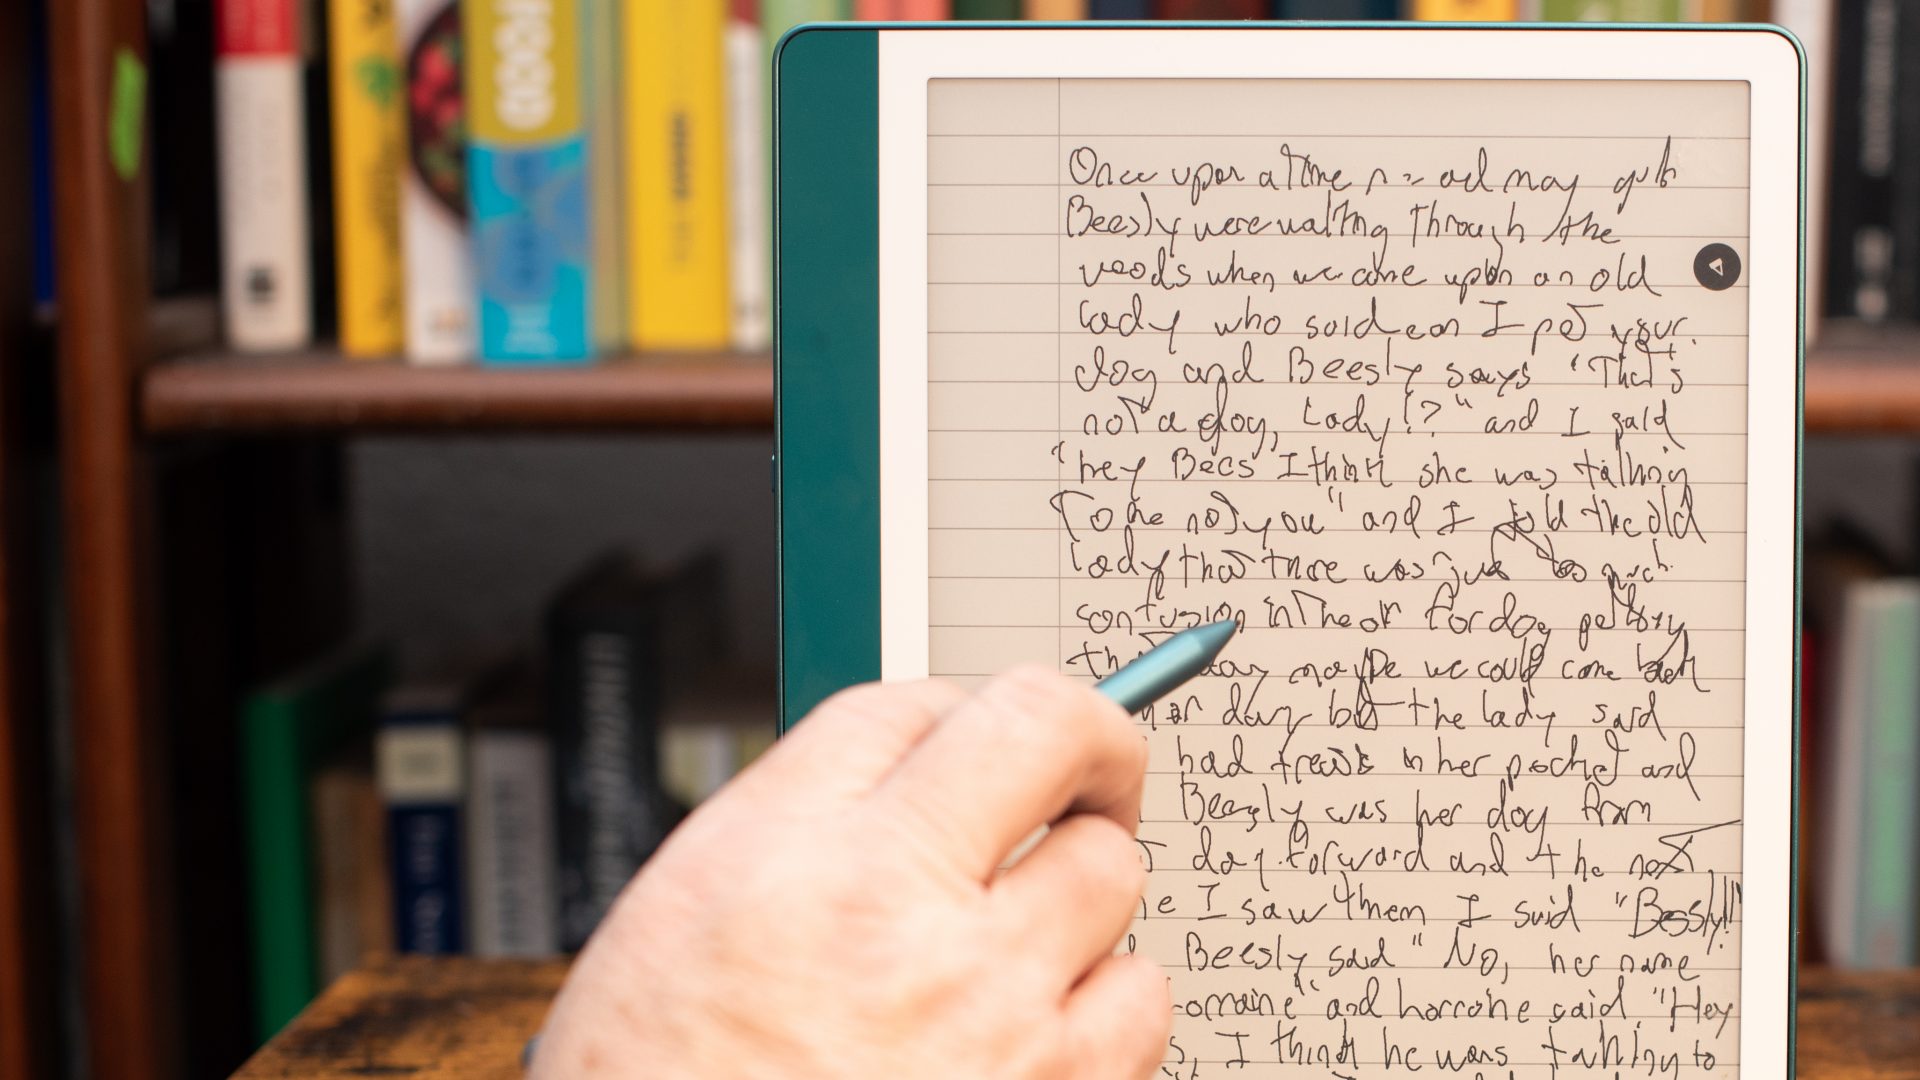 Once upon a time and my
Beesly were walking through the
woods when we came upon an old
lady who said can I pet your
dog and Beesly says "That's
not a dog, Lady!?" and I said
"hey Bees I think she was talking
To me not you" and I told the old
lady that there was just too much
confusion in the air for dog petting
day maybe we could come back
day but the lady said
had treats in her pocket and
Beesly was her dog from
day forward and the next
I saw them I said "Beesly!!"
Beesly said "No, her name
Lorraine" and Lorraine said "Hey
I think he was talking to